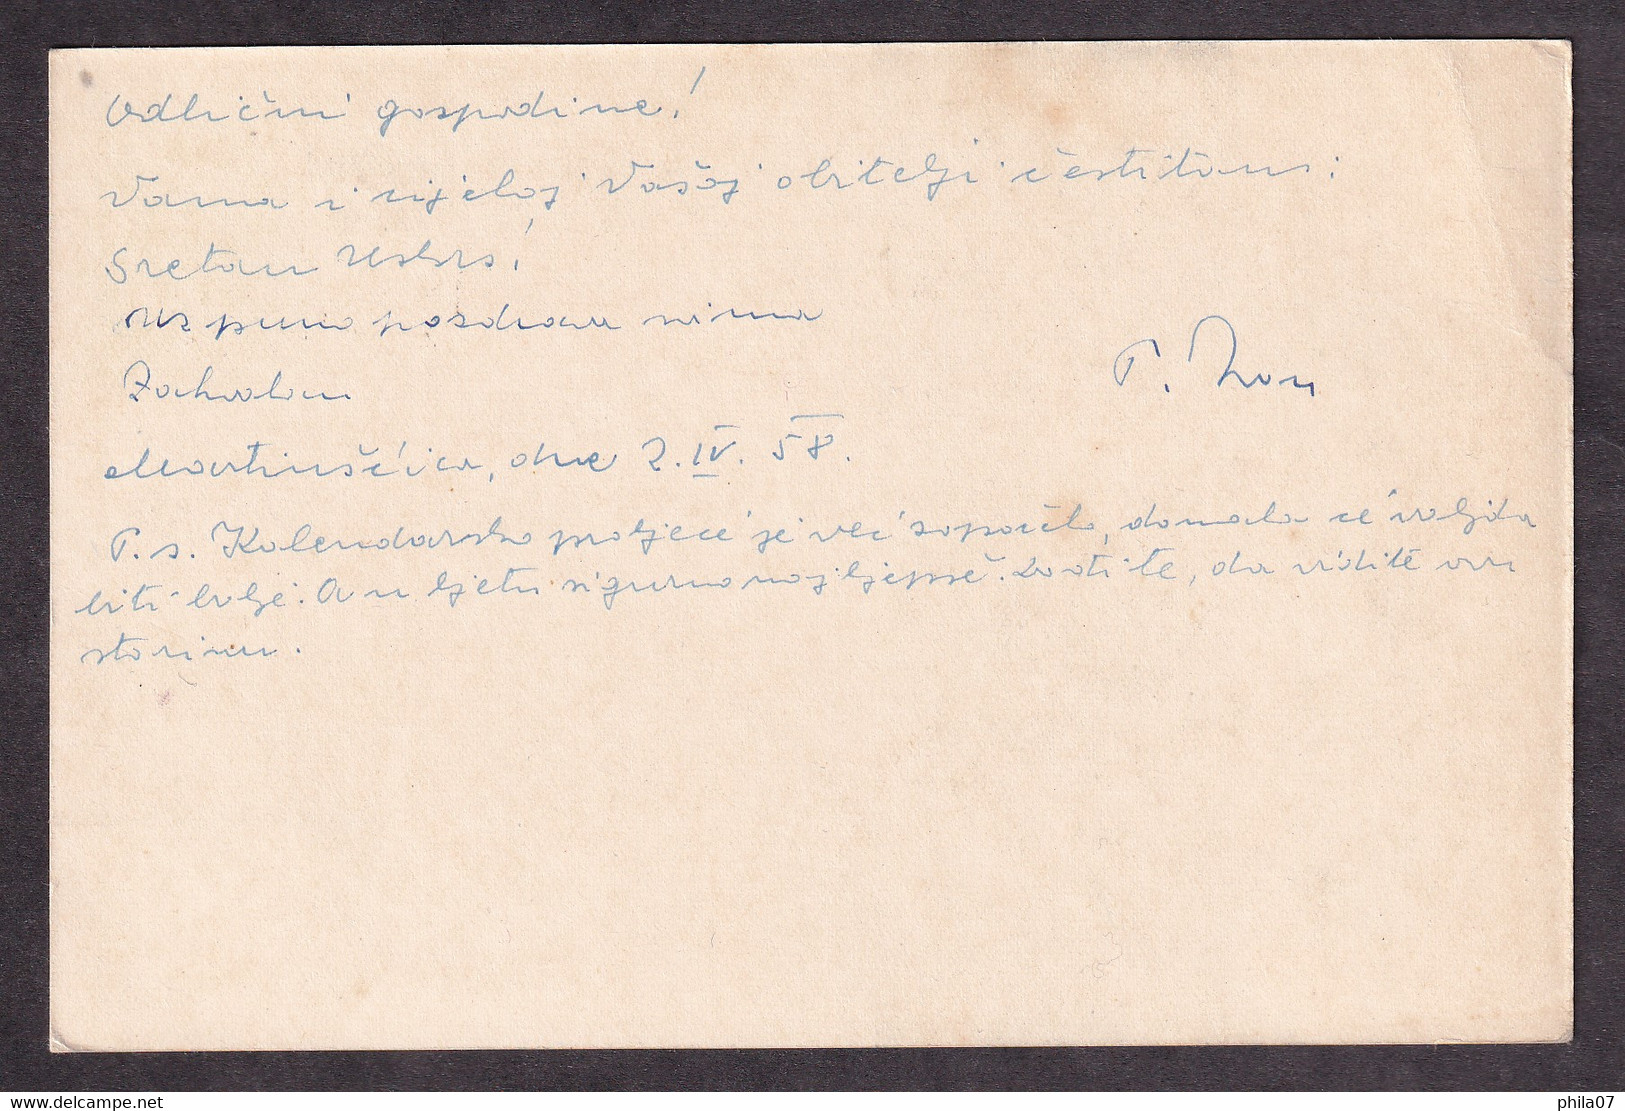 Odlični gospodine!
Vama i cijeloj Vašoj obitelji čestitam:
Sretan Uskrs!
Uz puno pozdrava svima
Zahvalan
P.
Martinšćica, dne 2.IV. 58.
P.s. Kalendarsko proljeće je već započelo, domala će valjda
biti bolje. A u ljetu sigurno najljepše. Dođite, da vidite ovu
starinu.
phila07
delcampe.net